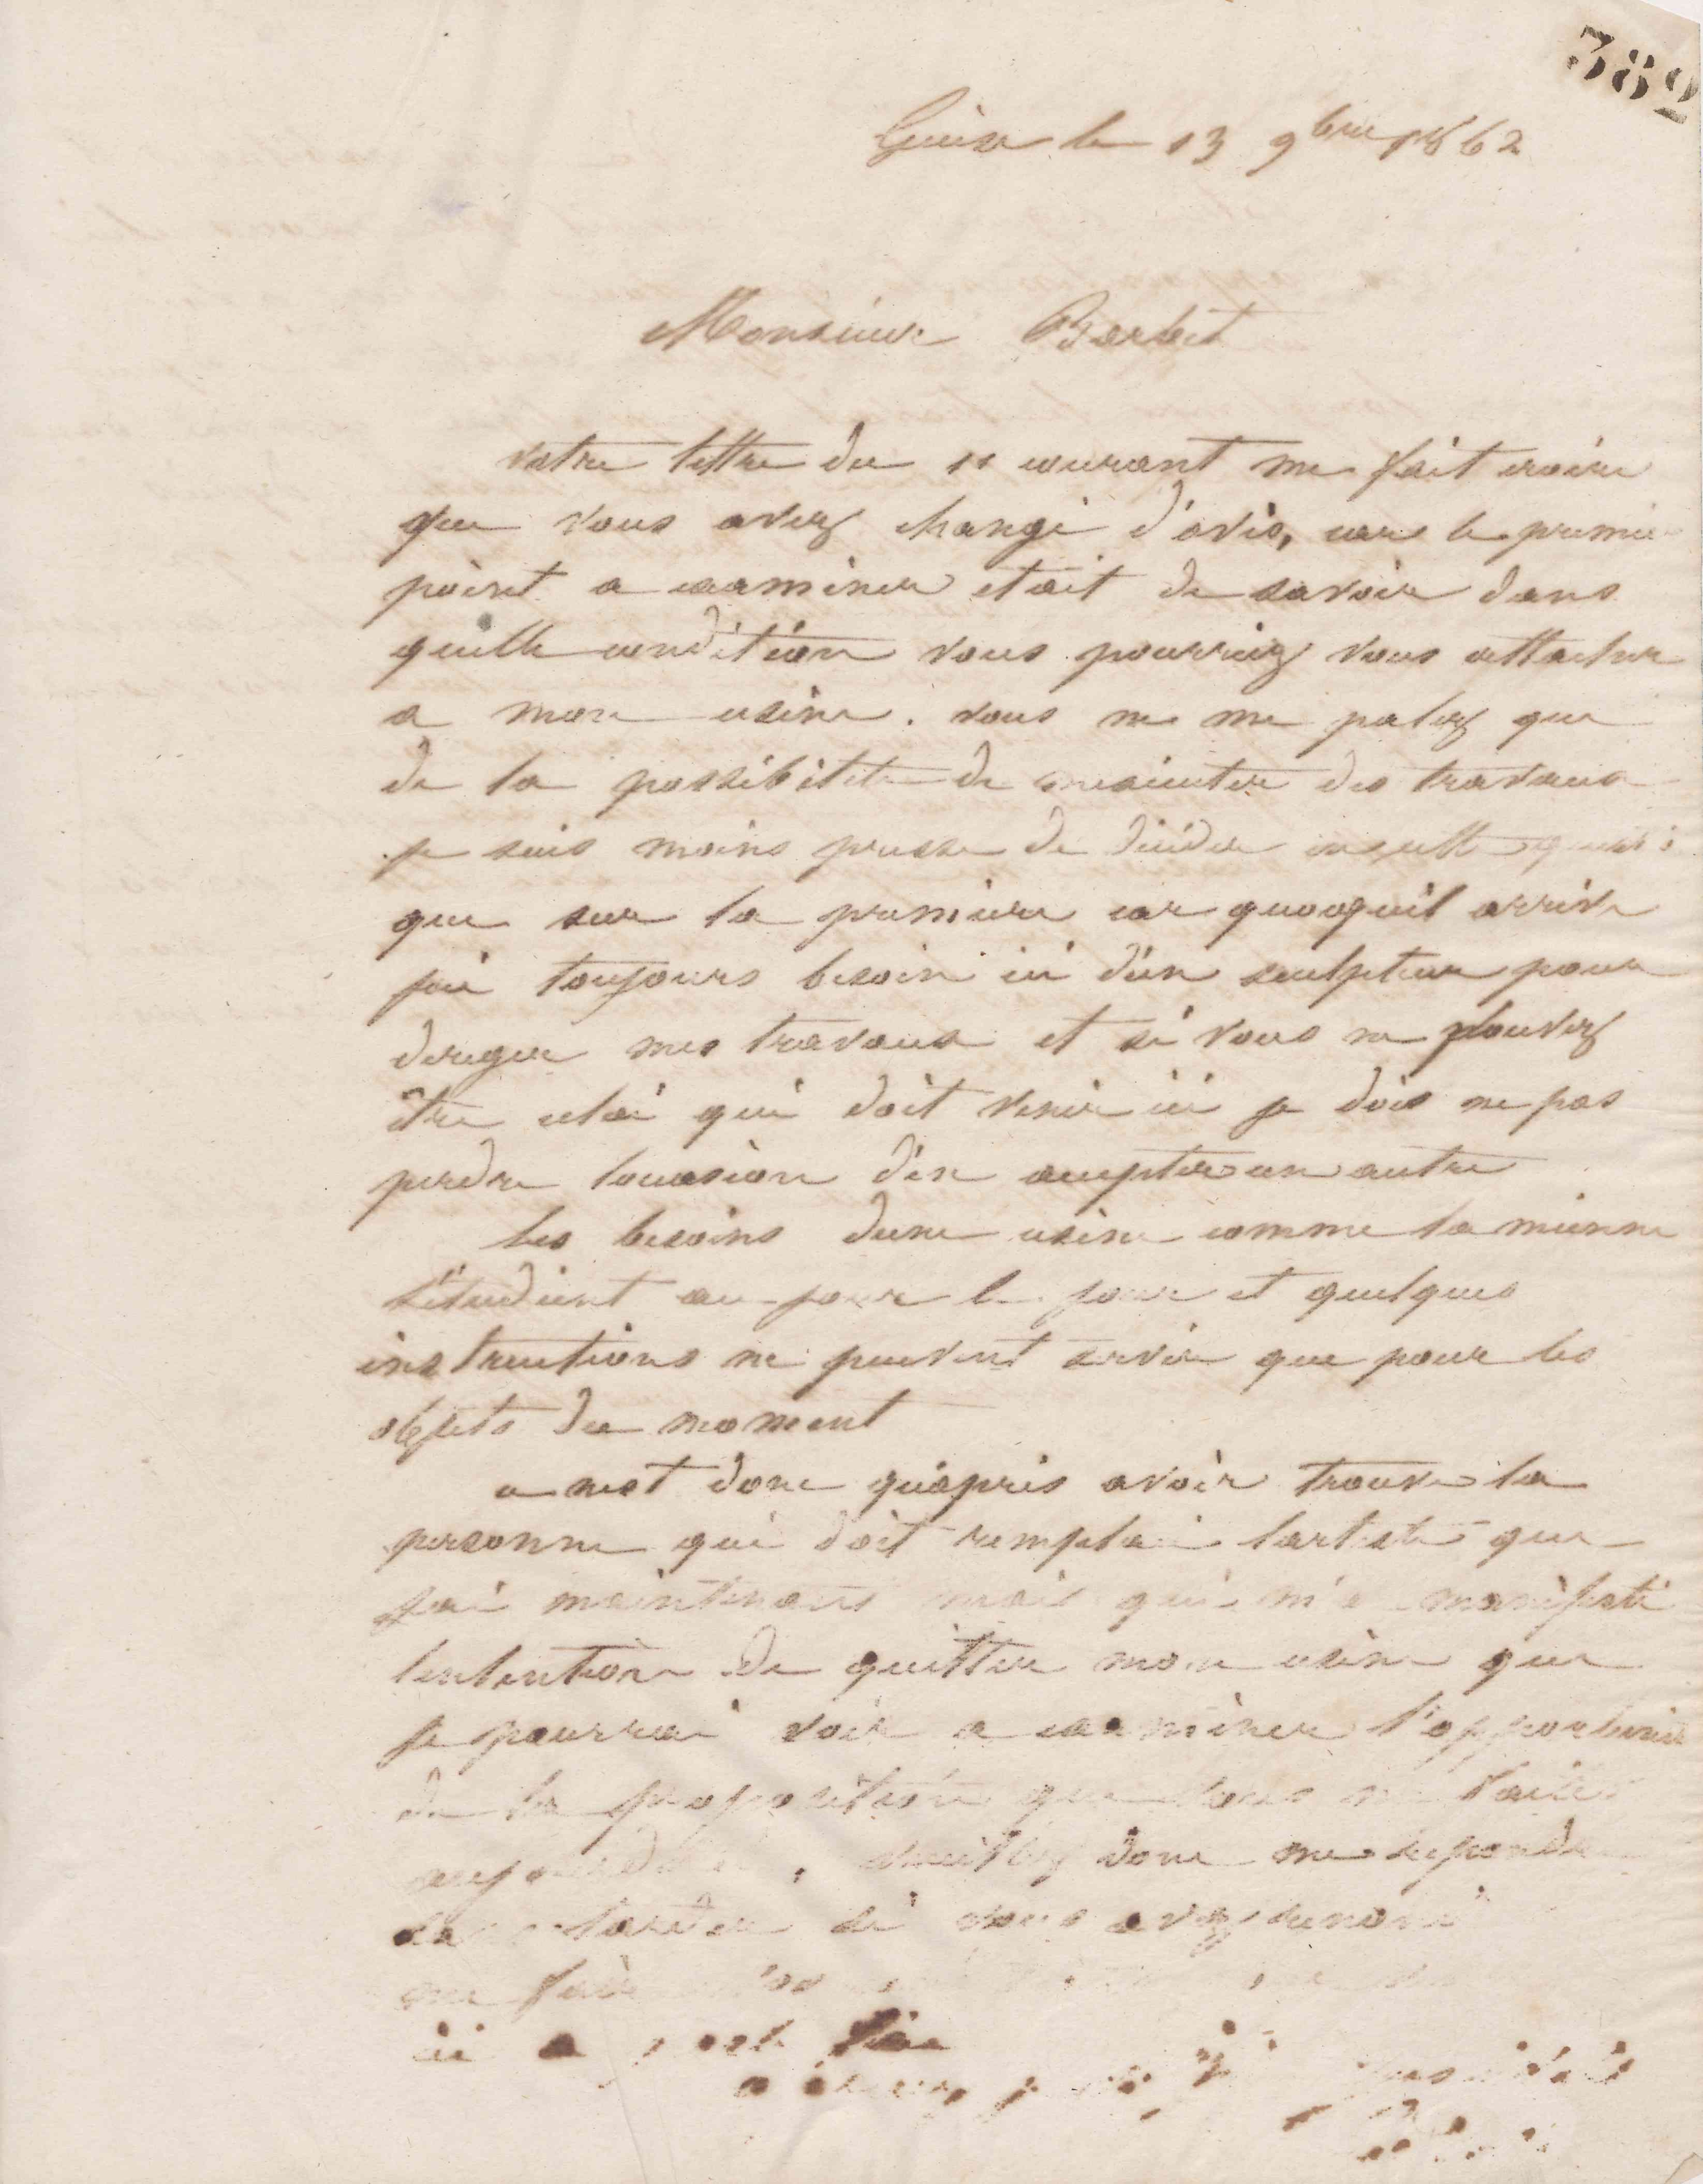 382
Guise le 13 9bre 1862
Monsieur Barbet
votre lettre du 11 courant me fait croire
que vous avez changé d'avis, car le premier
point a examiner etait de savoir dans
quelle condition vous pourriez vous attacher
a mon usine. vous ne me palez que
de la possibilite de executer des travaux
je suis moins presse de decider
que sur la premiere car quoiquil arrive
jai toujours besoin ici d'un sculpteur pour
diriger mes travaux et si vous ne pouvez
être celui qui doit venir ici je dois ne pas
perdre loccasion d'en accepter un autre
les besoins dune usine comme la mienne
s'étudient au jour le jour et quelques
instructions ne peuvent servir que pour les
objets du moment
ce nest donc qu'apres avoir trouve la
personne qui doit remplacer lartiste que
jai maintenant mais qui m'a manifesté
lintention de quitter mon usine que
je pourrai voir a examiner l'opportunité
de la proposition que vous me faites
aujourdhui, veuillez donc me repondre
sans tarder si vous avez renoncé
me faire
ici a